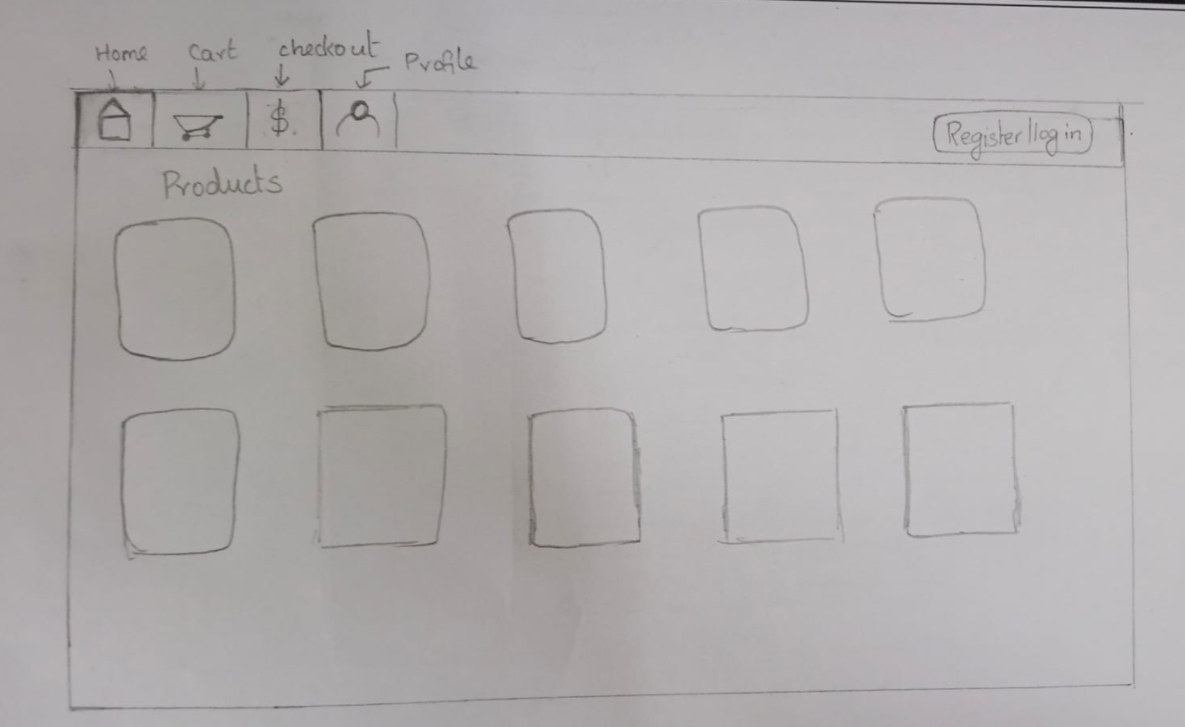 Home Cart checkout Profile
$
Register/log in
Products